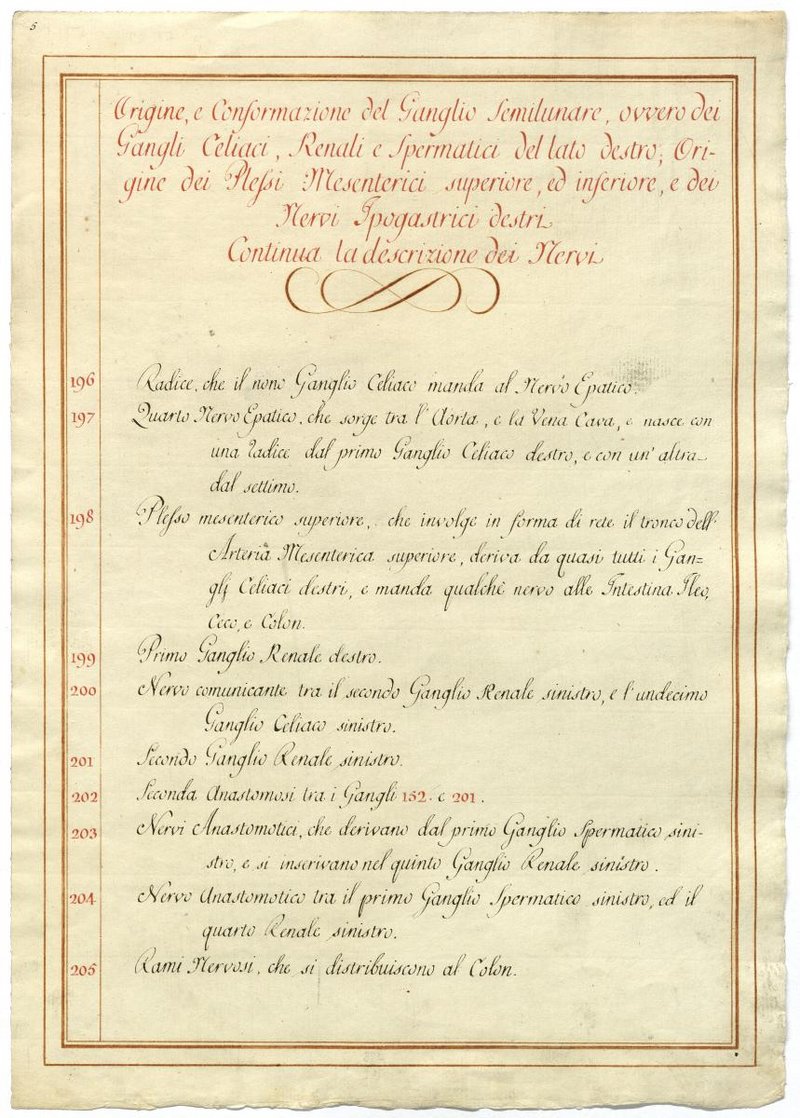 5
Origine, e Conformazione del Ganglio Semilunare, ovvero dei
Gangli Celiaci, Renali e Spermatici del lato destro; Ori-
gine dei Plessi Mesenterici superiore, ed inferiore, e dei
Nervi Ipogastrici destri
Continua la descrizione dei Nervi
196 Radice, che il nono Ganglio Celiaco manda al Nervo Epatico.
197 Quarto Nervo Epatico, che sorge tra l'Aorta, e la Vena Cava, e nasce con
una radice dal primo Ganglio Celiaco destro, e con un' altra
dal settimo.
198 Plesso mesenterico superiore, che involge in forma di rete il tronco dell'
Arteria Mesenterica superiore, deriva da quasi tutti i Gan=
glj Celiaci destri, e manda qualche nervo alle Intestina Ileo,
Ceco, e Colon.
199 Primo Ganglio Renale destro.
200 Nervo comunicante tra il secondo Ganglio Renale sinistro, e l'undecimo
Ganglio Celiaco sinistro.
201 Secondo Ganglio Renale sinistro.
202 Seconda Anastomosi tra i Gangli 152. e 201.
203 Nervi Anastomotici, che derivano dal primo Ganglio Spermatico sini-
stro, e si inserivano nel quinto Ganglio Renale sinistro.
204 Nervo Anastomotico tra il primo Ganglio Spermatico sinistro, ed il
quarto Renale sinistro.
205 Rami Nervosi, che si distribuiscono al Colon.